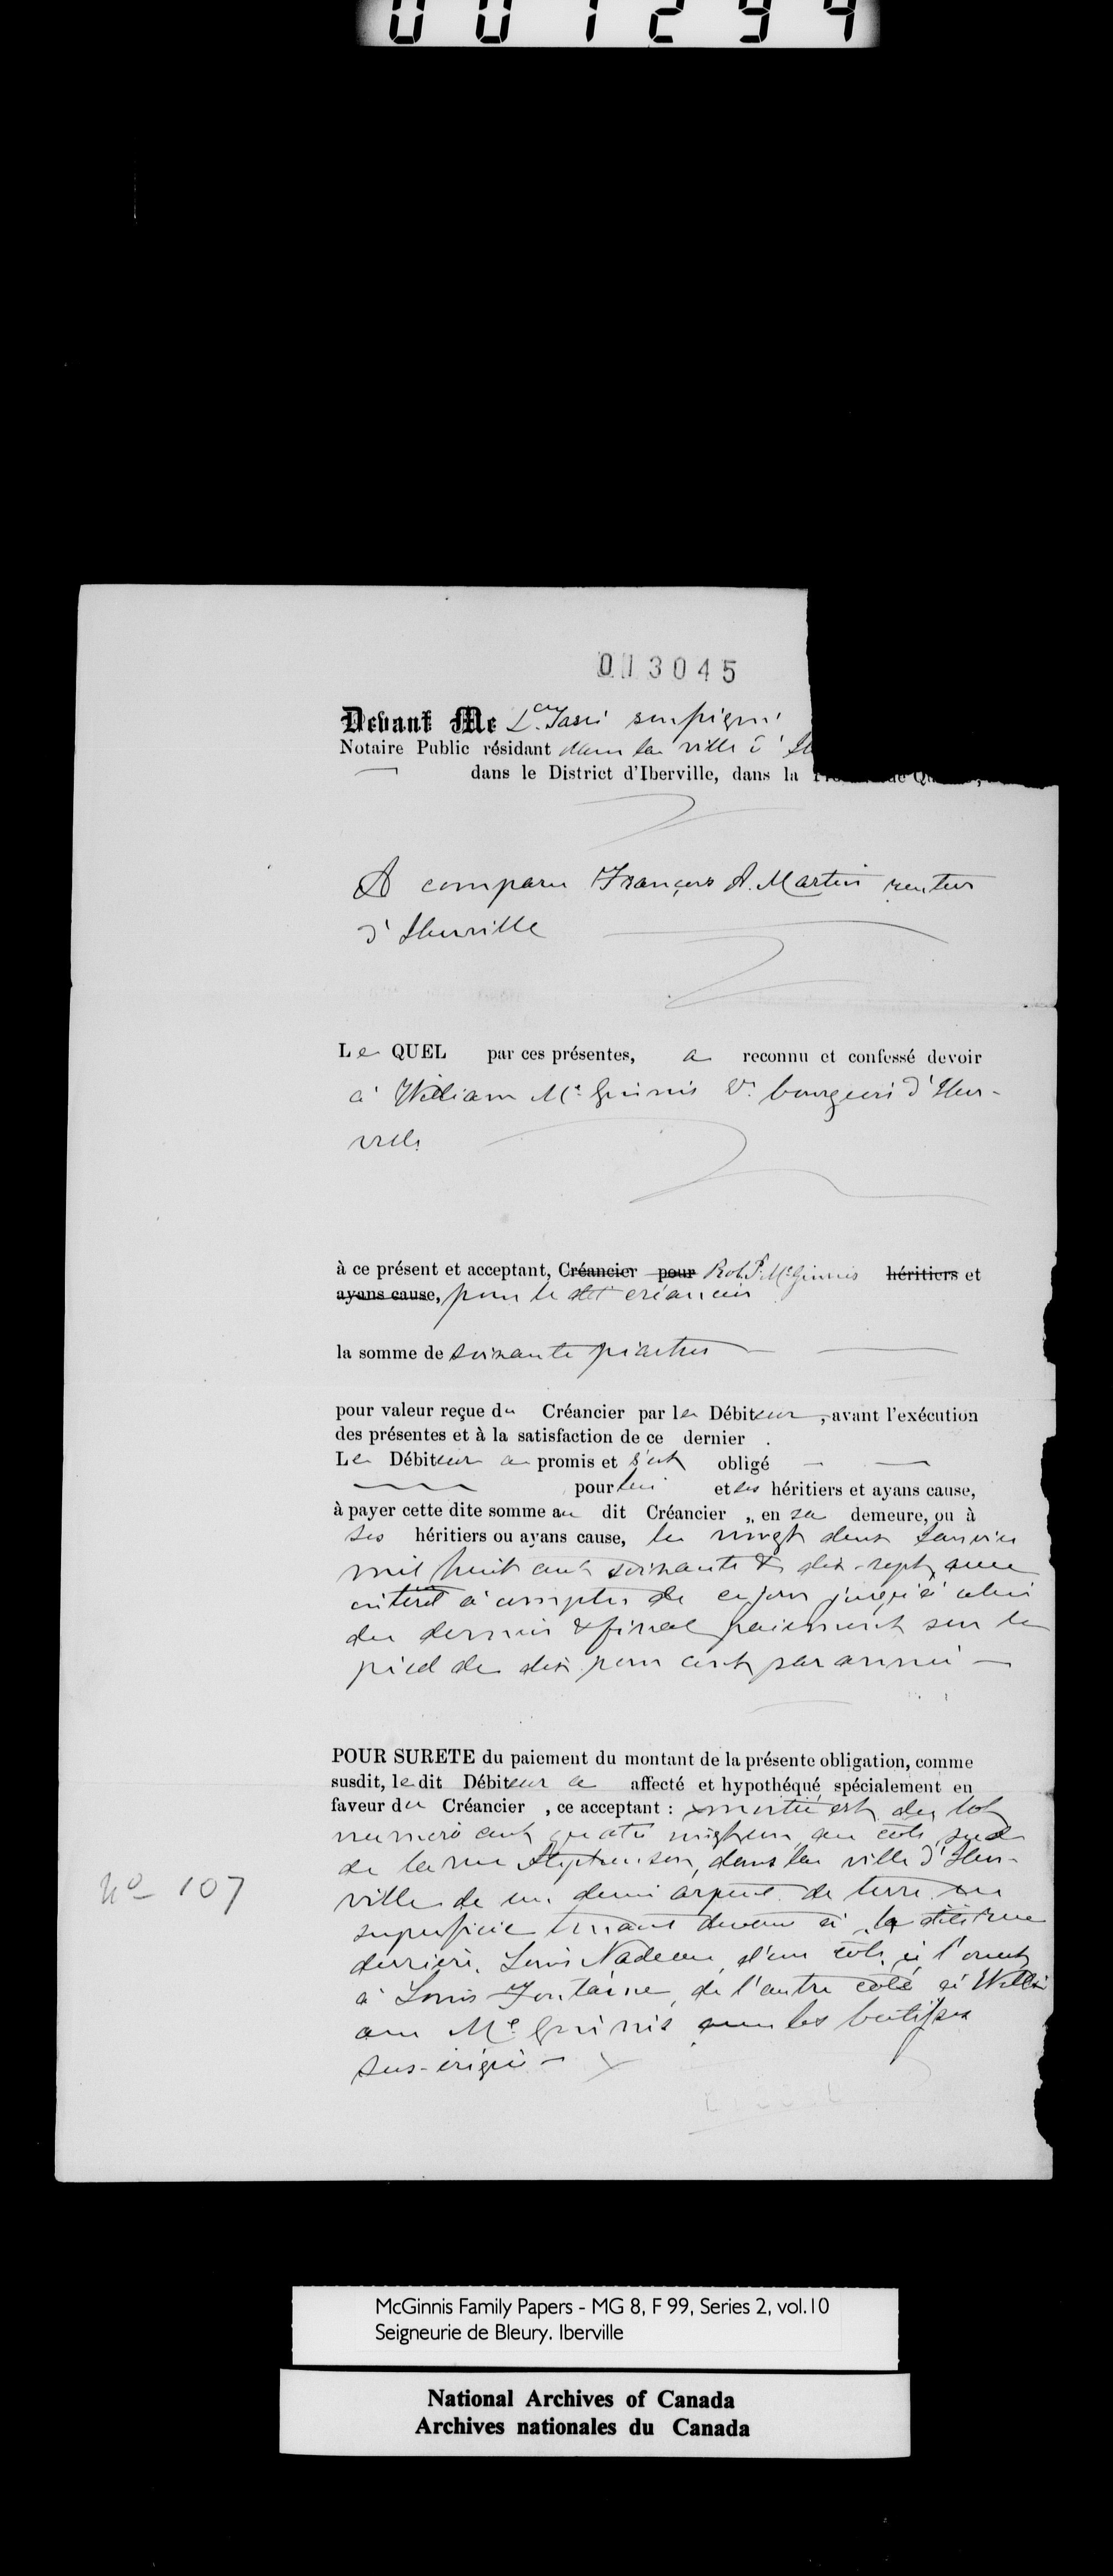 001294
013045
Devant Me Ls Tassé soussigné
Notaire Public résidant dans la ville d'
dans le District d'Iberville, dans la
A comparu François A. Martin rentier
d'Iberville
Le QUEL par ces présentes, a reconnu et confessé devoir
à William McGinnis Vr. bourgeois d'Iber-
ville
à ce présent et acceptant, Créancier pour Robt McGinnis héritiers et
ayans cause, pour le dit créancier
la somme de soixante piastres
pour valeur reçue du Créancier par le Débiteur, avant l'exécution
des présentes et à la satisfaction de ce dernier .
Le Débiteur a promis et s'est obligé
pour lui et ses héritiers et ayans cause,
à payer cette dite somme au dit Créancier „ en sa demeure, ou à
ses héritiers ou ayans cause, le vingt deux Janvier
mil huit cent soixante & dix-sept, avec
intérêt à compter de ce jour jusqu'à celui
du dernier & final paiement sur le
pied de dix pour cent par année —
POUR SURETE du paiement du montant de la présente obligation, comme
susdit, le dit Débiteur a affecté et hypothéqué spécialement en
faveur du Créancier , ce acceptant : x moitié est du lot
numéro cent quatre vingt un au côté sud
de la rue Stephenson, dans la ville d'Iber-
No 107
ville de un demi arpent de terre en
superficie tenant devant à la dite rue
derrière Louis Nadeau, d'un côté à l'ouest
à Louis Fontaine, de l'autre côté à Willi
am McGinnis avec les batisses
sus-érigées — x
McGinnis Family Papers - MG 8, F 99, Series 2, vol.10
Seigneurie de Bleury. Iberville
National Archives of Canada
Archives nationales du Canada